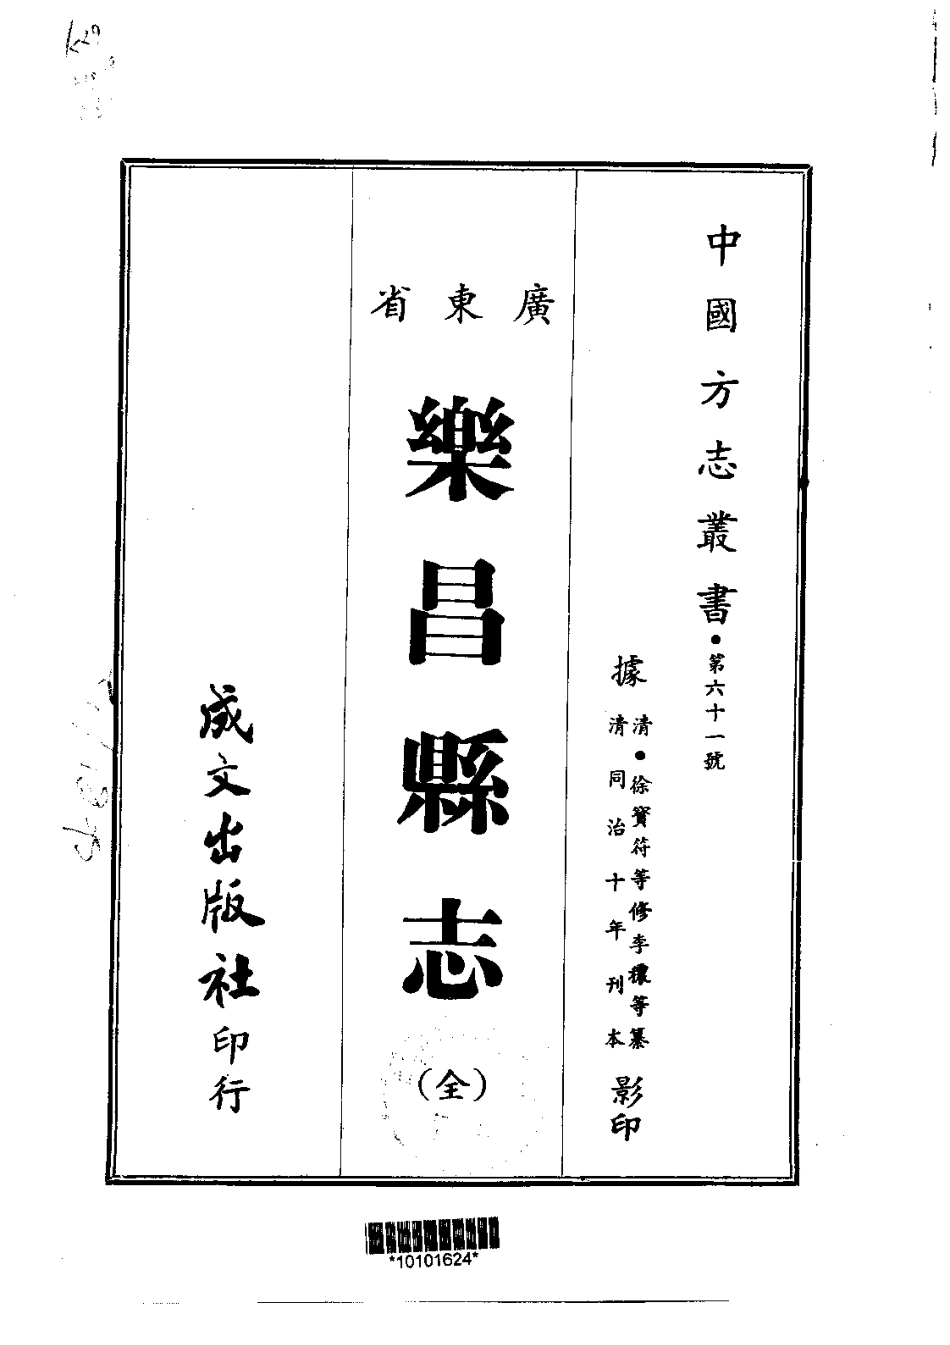 中國方志叢書•第六十一號
據
清•徐寶符等修李穰等纂
清同治十年刊本
影印
廣東省
樂昌縣志
(全)
成文出版社印行
*10101624*